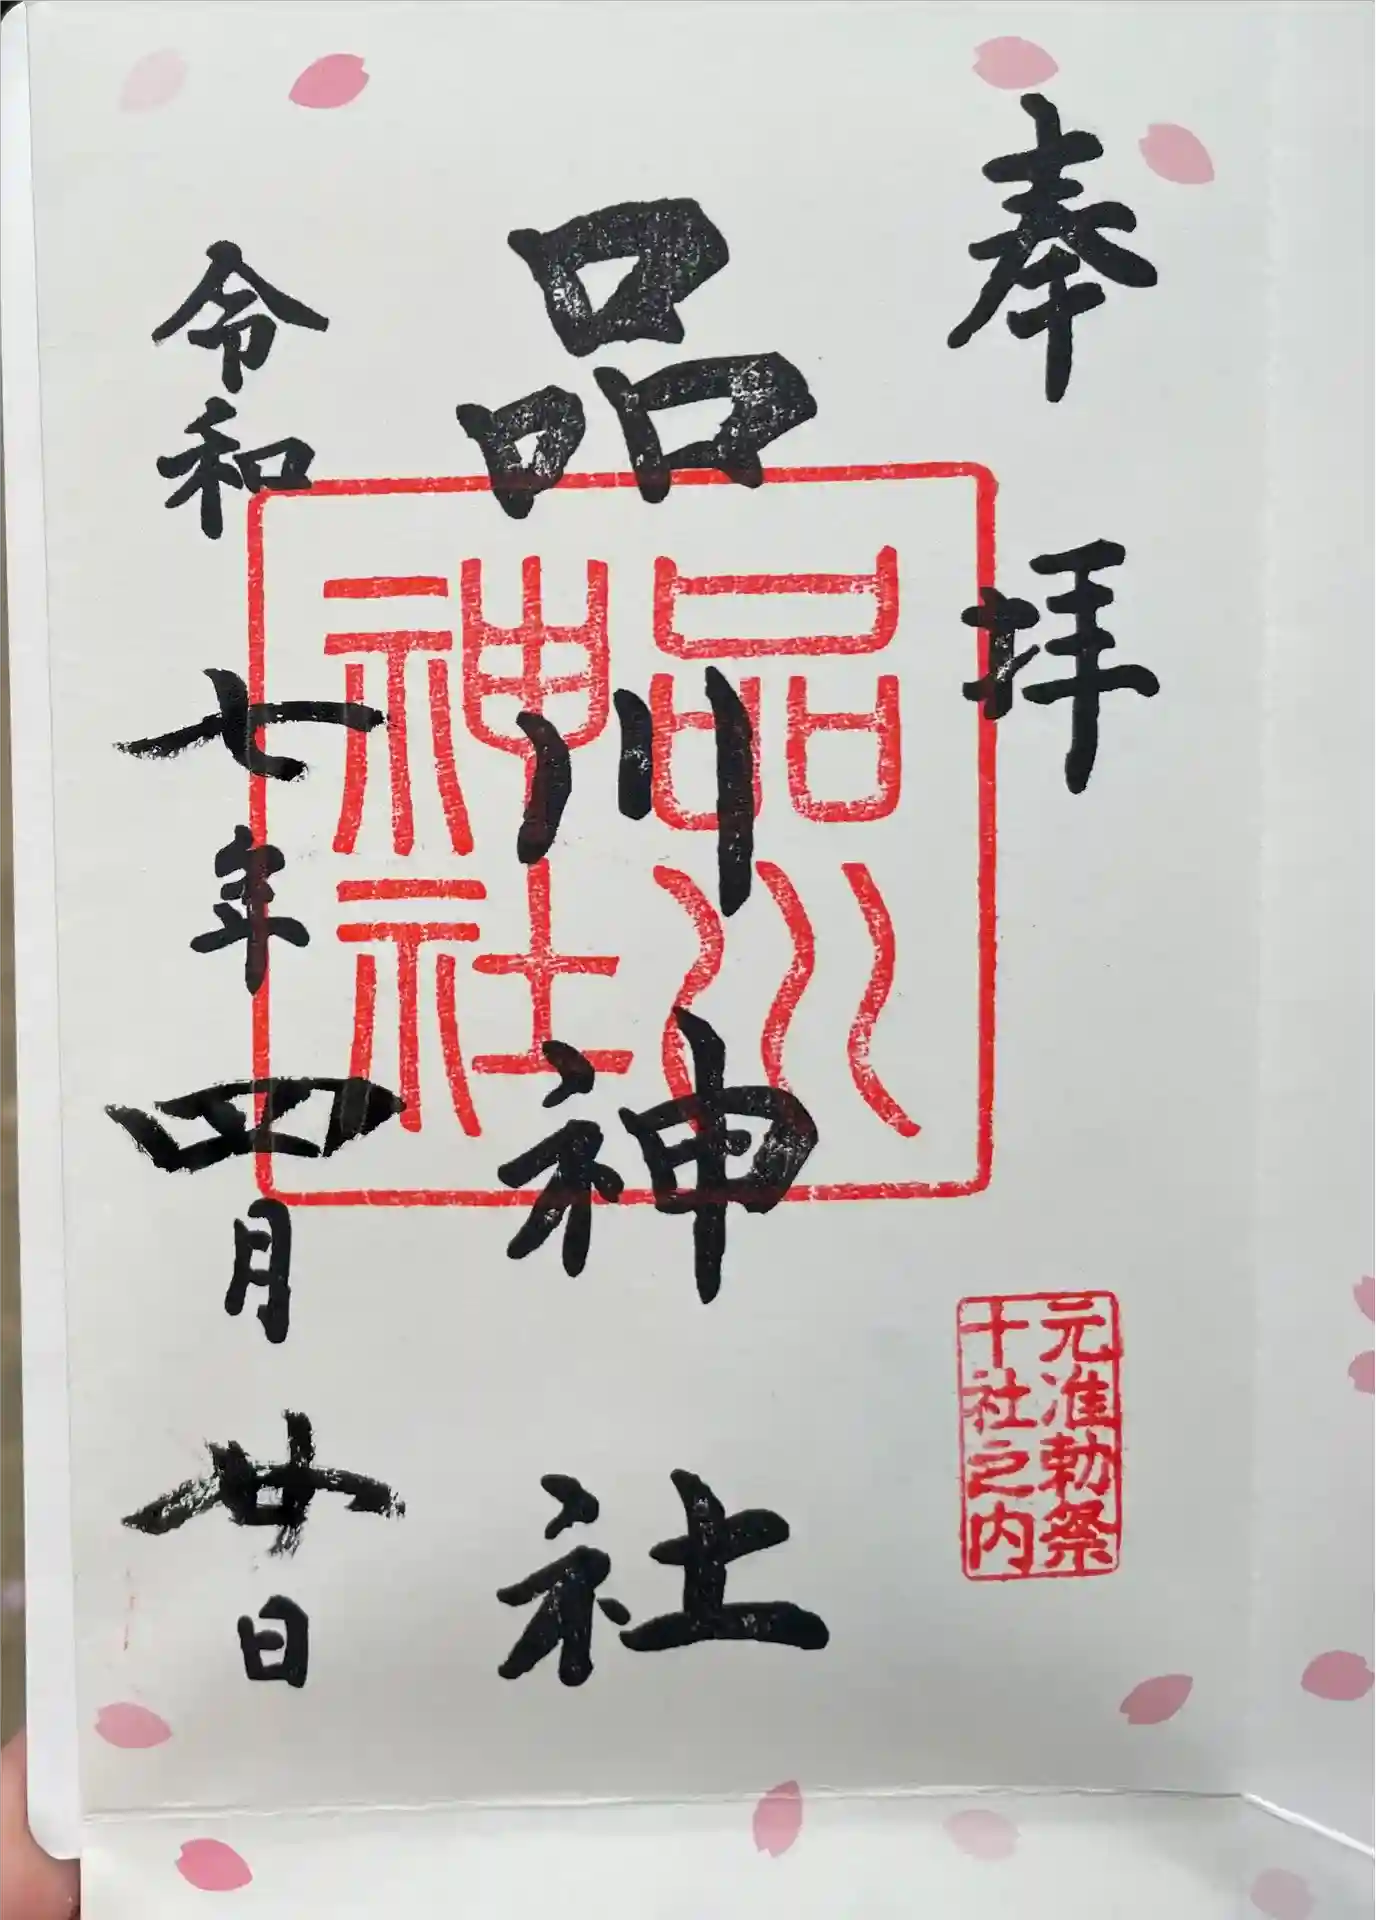 奉拝
元准勅祭
十社之内
品川神社
品川
神社
令和七年四月廿日